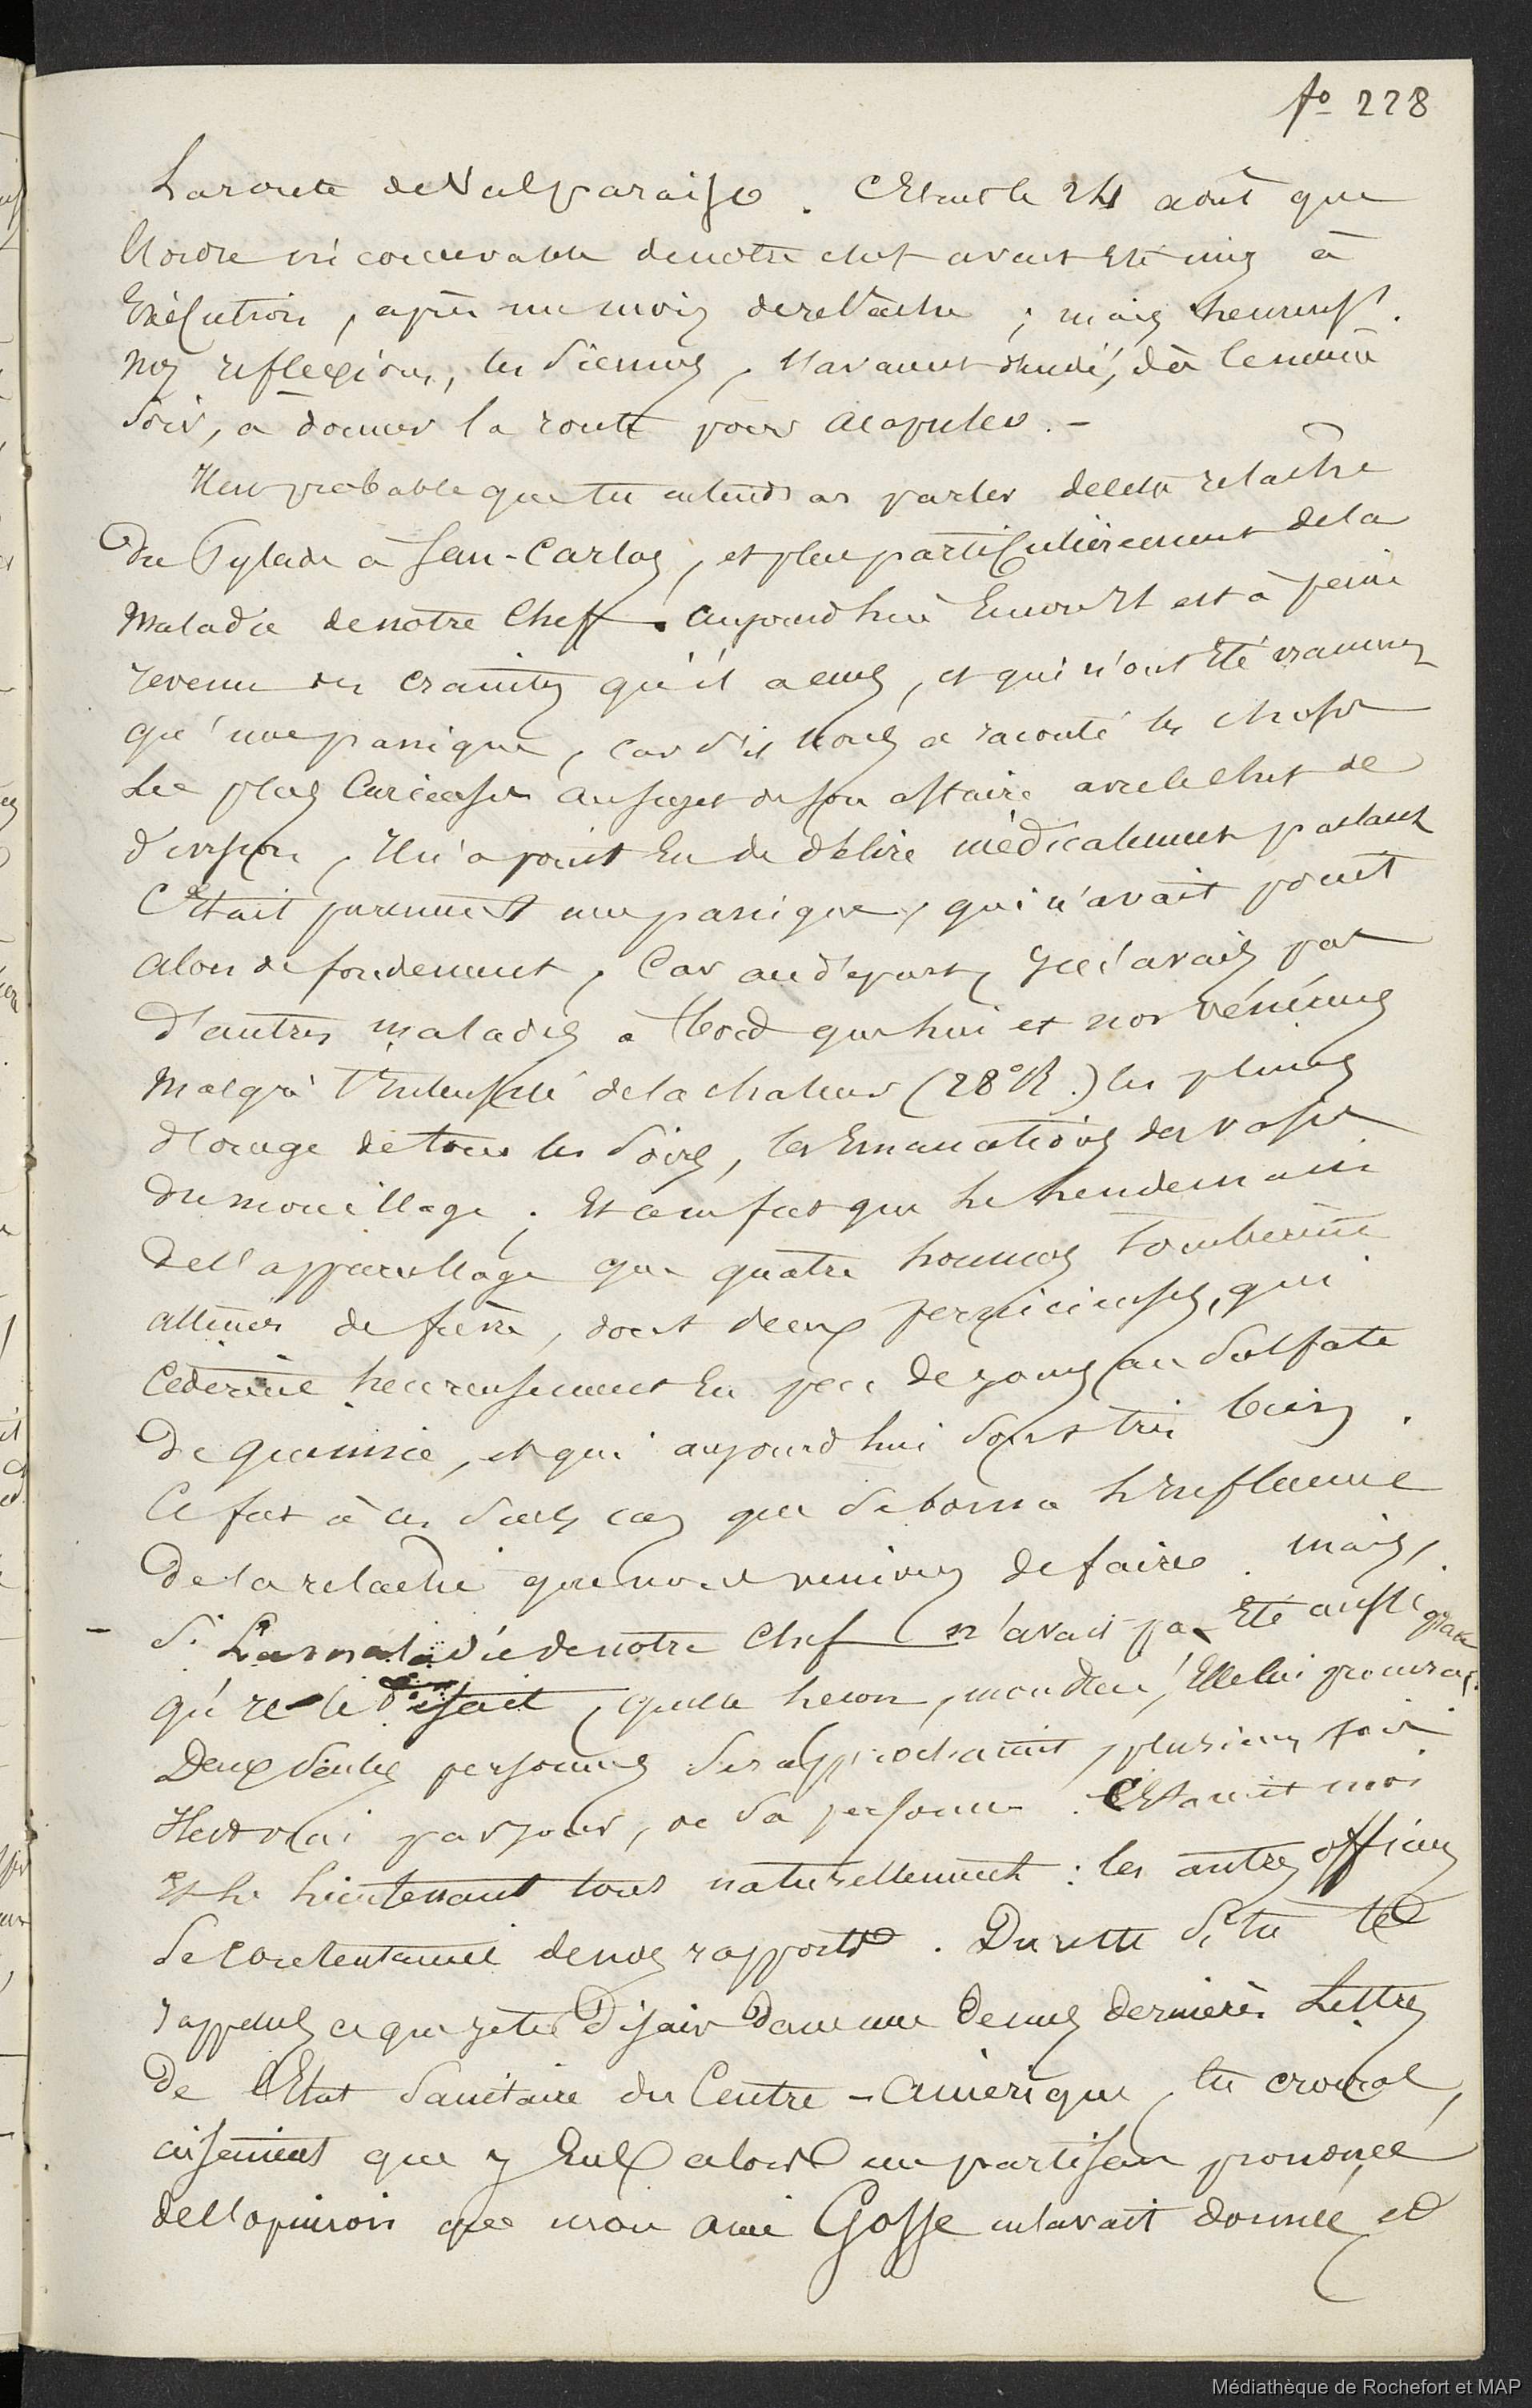 fo 228
La route de Valparaiso. C'Etait le 24 août que
l'ordre inconcevable de notre chef avait Eté mis à
Exécution, après un mois de relâche ; mais heureusst.
nos reflexions, les siennes, l'avaient décidé, dès le même
soir, à donner la route pour Acapulco. -
Il est probable que tu entendras parler de cette relâche
du Pylade à San-Carlos, et plus particulièrement de la
Maladie de notre Chef. aujourd'hui Encore Il est à peine
revenu des craintes qu'il a eues, et qui n'ont Eté vraiment
qu'une panique, car s'il nous a raconté les choses
les plus Curieuses au sujet de son affaire avec le chef de
division, Il n'a point Eu de délire médicalement parlant
C'Etait purement une panique, qui n'avait point
alors de fondement, Car au départ, Je n'avais pas
d'autres malades à bord que lui et nos vénériens
Malgré l'Intensité de la chaleur (28° R.) les pluies
d'orage de tous les soirs, les Emanations des vases
du mouillage. Et ce ne fut que le lendemain
de l'appareillage que quatre hommes tombèrent
atteints de fièvre, dont deux pernicieuses, qui
Cédèrent heureusement En peu de jours au Sulfate
de quinine, et qui aujourd'hui sont très bien.
Ce fut à ces seuls cas que se borna l'Influence
De la relâche que nous venions de faire. mais,
- Si La maladie de notre Chef n'avait pas Eté aussi grave
qu'il le disait, quelle leçon, mon dieu, Elle lui procura.
Deux seules personnes s'approchaient, plusieurs fois
Il est vrai par jour, de sa personne. C'Etaient moi
Et le lieutenant tout naturellement : les autres officiers
se contentaient de nos rapports. Du reste si tu te
rappelles ce que je te Disais Dans une de mes dernières Lettres
De l'Etat Sanitaire du Centre-Amérique, tu croiras,
aisément que j'Eus alors un partisan prononcé
de l'opinion que mon ami Gosse m'avait donnée, et
Médiathèque de Rochefort et MAP